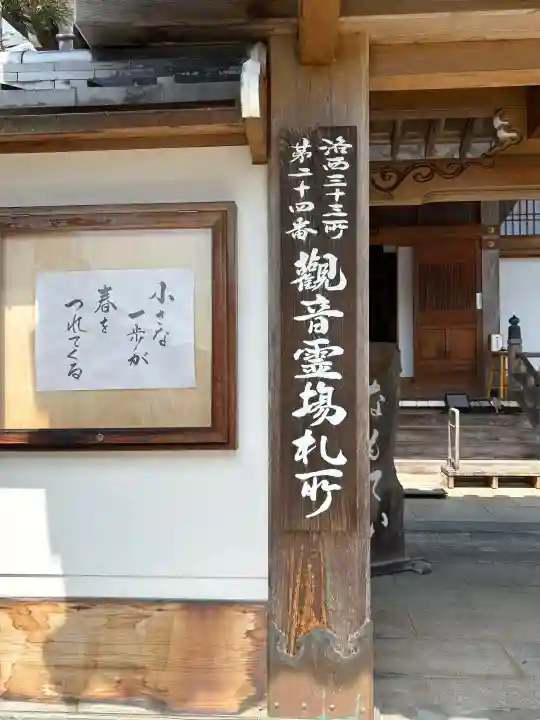 洛西三十三所
第二十四番
觀音霊場札所
小さな
一歩が
春を
つれてくる